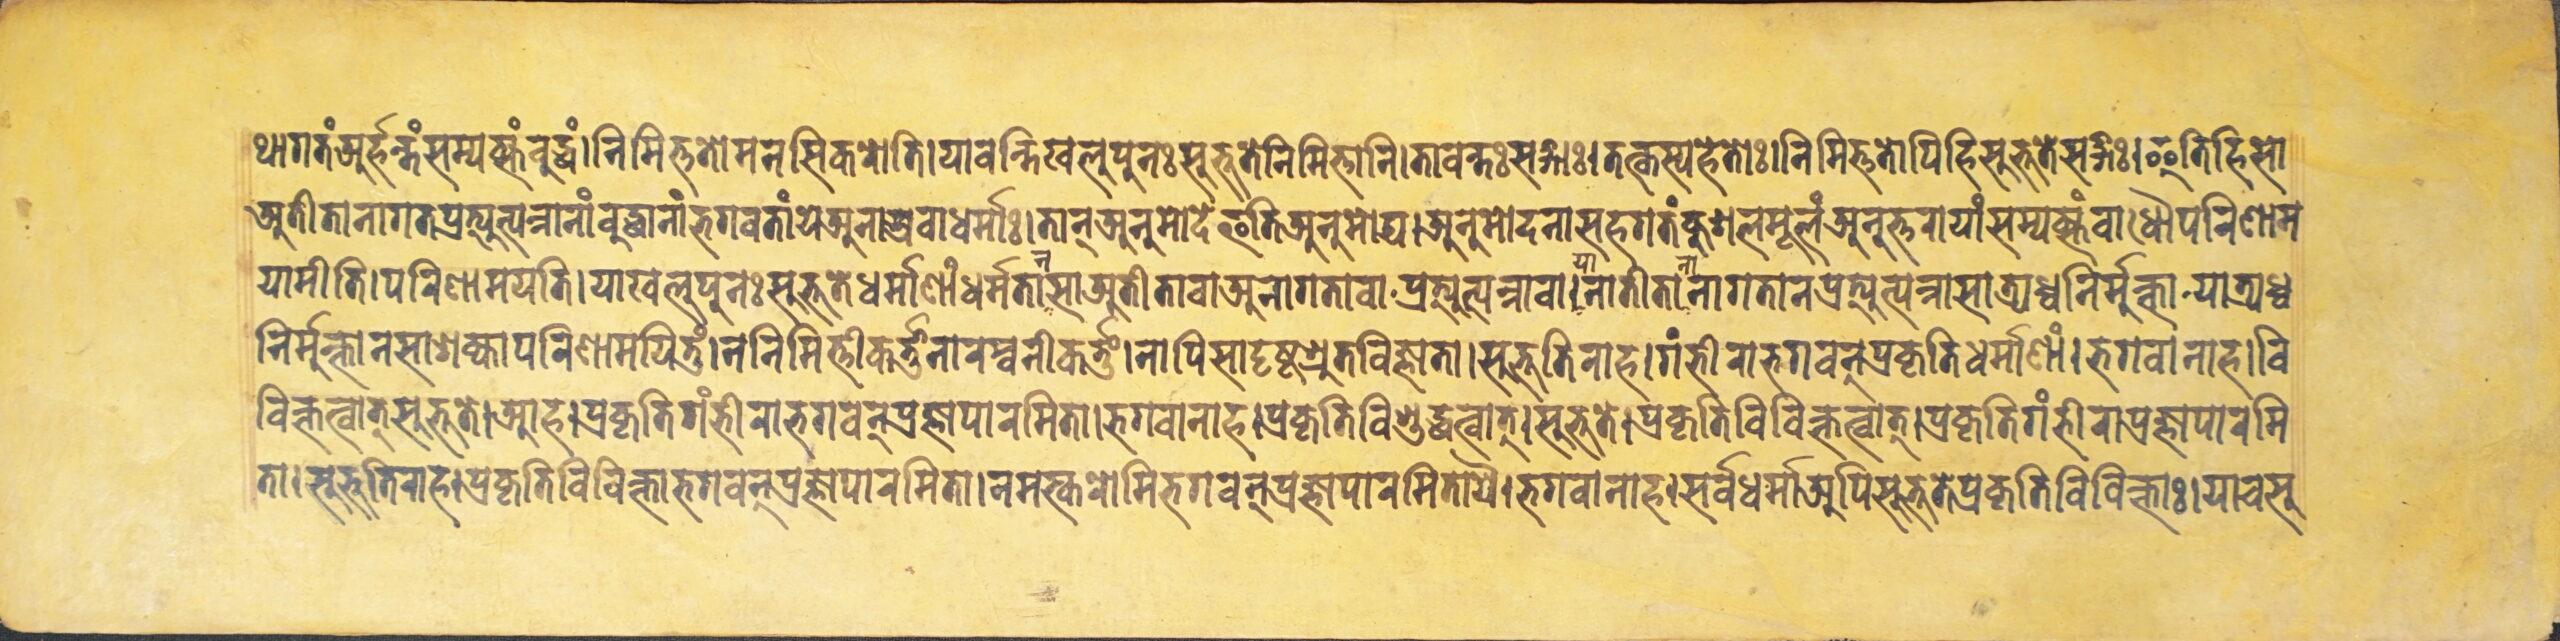 थागतं अर्हन्तं सम्यक्सं बुद्धं। निमित्ततो मनसिकरोति। यावन्ति खलु पुनः सुभूते निमित्तानि। तावन्तः सङ्गाः। तत्कस्य हेतोः। निमित्ततोपि हि सुभूते सङ्गः। इति हि सो
अतीतानागतप्रत्युत्पन्नानां बुद्धानां भगवतां ये अनाश्रवा धर्माः। तान् अनुमोदे इति अनुमोद्य। अनुमोदनासहगतं कुशलमूलं अनुत्तरायां सम्यक्सं वाधौ परिणाम
यामीति। परिणामयति। या खलु पुनः सुभूते धर्माणां धर्मता न सा अतीता वा अनागता वा प्रत्युत्पन्ना वा। या नातीता नानागता न प्रत्युत्पन्ना सा त्र्यध्वनिर्मुक्ता या त्र्यध्व
निर्मुक्ता न सा शक्या परिणामयितुं। न निमित्तीकर्त्तुं नारम्वनीकर्त्तुं। नापि सा दृष्टश्रुतविज्ञाता। सुभूतिराह। गंभीरा भगवन् प्रकृति धर्माणां। भगवानाह। वि
विक्तत्वात् सुभूते। आह। प्रकृतिगंभीरा भगवन् प्रज्ञापारमिता। भगवानाह। प्रकृतिविशुद्धत्वात्। सुभूते। प्रकृतिविविक्तत्वात्। प्रकृतिगंभीरा प्रज्ञापारमि
ता। सुभूतिराह। प्रकृतिविविक्ता भगवन् प्रज्ञापारमिता। नमस्करोमि भगवन् प्रज्ञापारमितायै। भगवानाह। सर्वधर्मा अपि सुभूते प्रकृतिविविक्ताः। या च सु